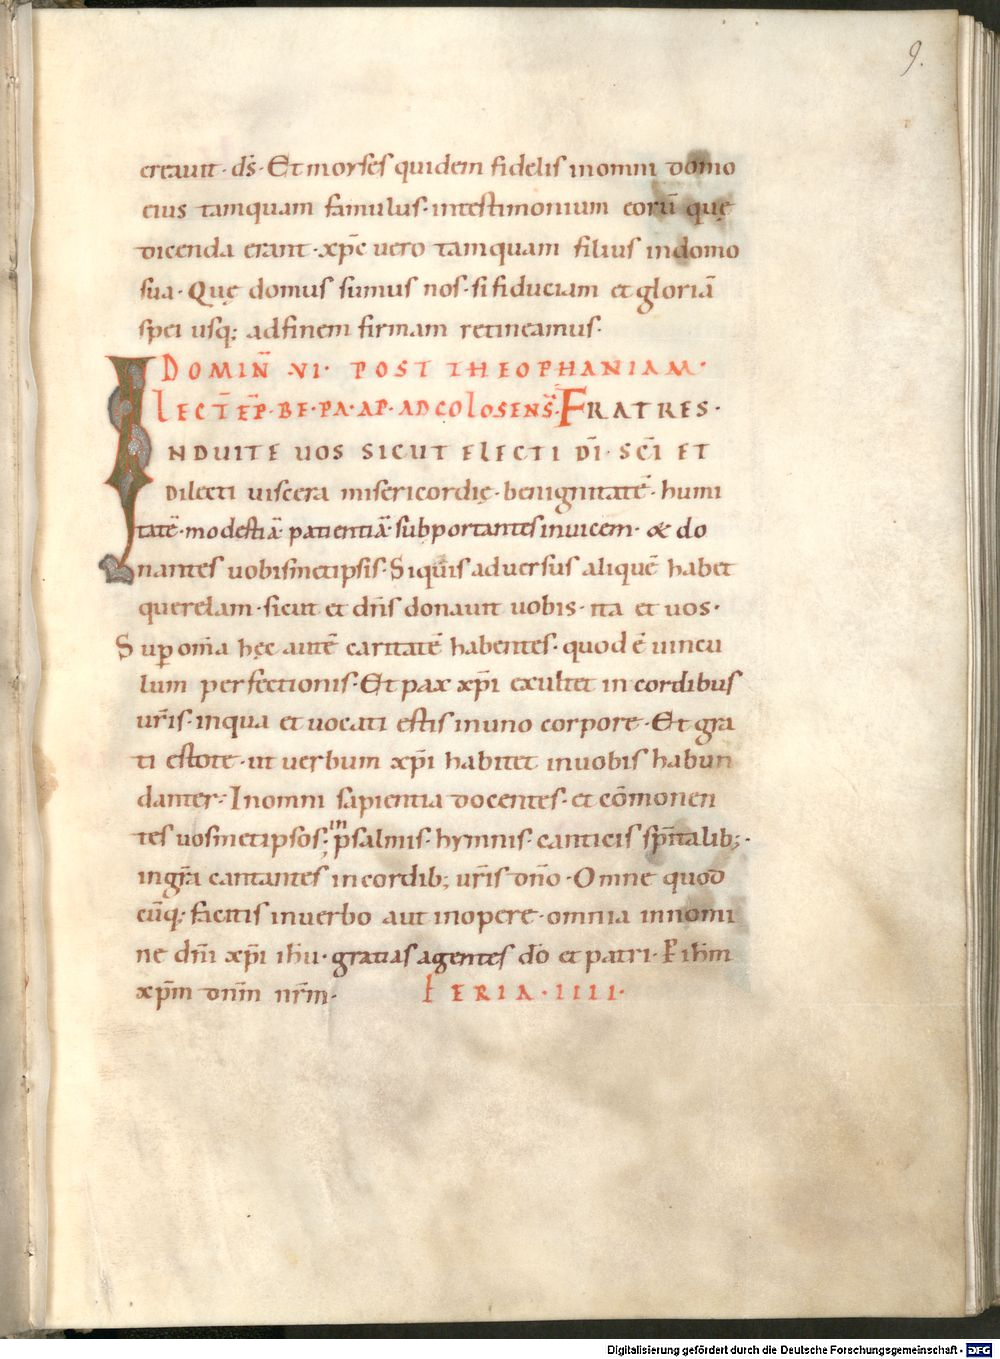 9.
creavit · ds̄ · Et moyses quidem fidelis inomni domo
eius tamquam famulus · intestimonium eorū quę
dicenda erant · xp̄c vero tamquam filius indomo
sua · Quę domus sumus nos · si fiduciam et gloriā
spei usq; adfinem firmam retineamus ·
DOMIN̄ · VI · POST THEOPHANIAM ·
LECT̄ EP̄ · BE · PA · AP · AD COLOSENS̄ · FRATRES ·
INDUITE VOS SICUT ELECTI DĪ · SC̄I ET
Dilecti viscera misericordię · benignitatē · humi
tatē · modestiā · patientiā · subportantes invicem · & do
nantes vobismetipsis · Siquis adversus aliquē habet
querelam · sicut et dn̄s donavit vobis · ita et vos ·
Sup̄ om̄a hęc autē caritatē habentes · quod ē vincu
lum perfectionis · Et pax xp̄i exultet in cordibus
vr̄is · inqua et vocati estis inuno corpore · Et gra
ti estote · ut verbum xp̄i habitet invobis habun
danter · Inomni sapientia docentes · et cōmonen
tes vosmetipsos · in psalmis · hymnis · canticis sp̄italib; ·
ingr̄a cantantes in cordib; vr̄is dn̄o · Omne quod
cūq; facitis inverbo aut inopere · omnia innomi
ne dn̄i xp̄i ih̄u · gratias agentes dō et patri · P ih̄m
xp̄m dn̄m nr̄m · FERIA · IIII ·
Digitalisierung gefördert durch die Deutsche Forschungsgemeinschaft - DFG